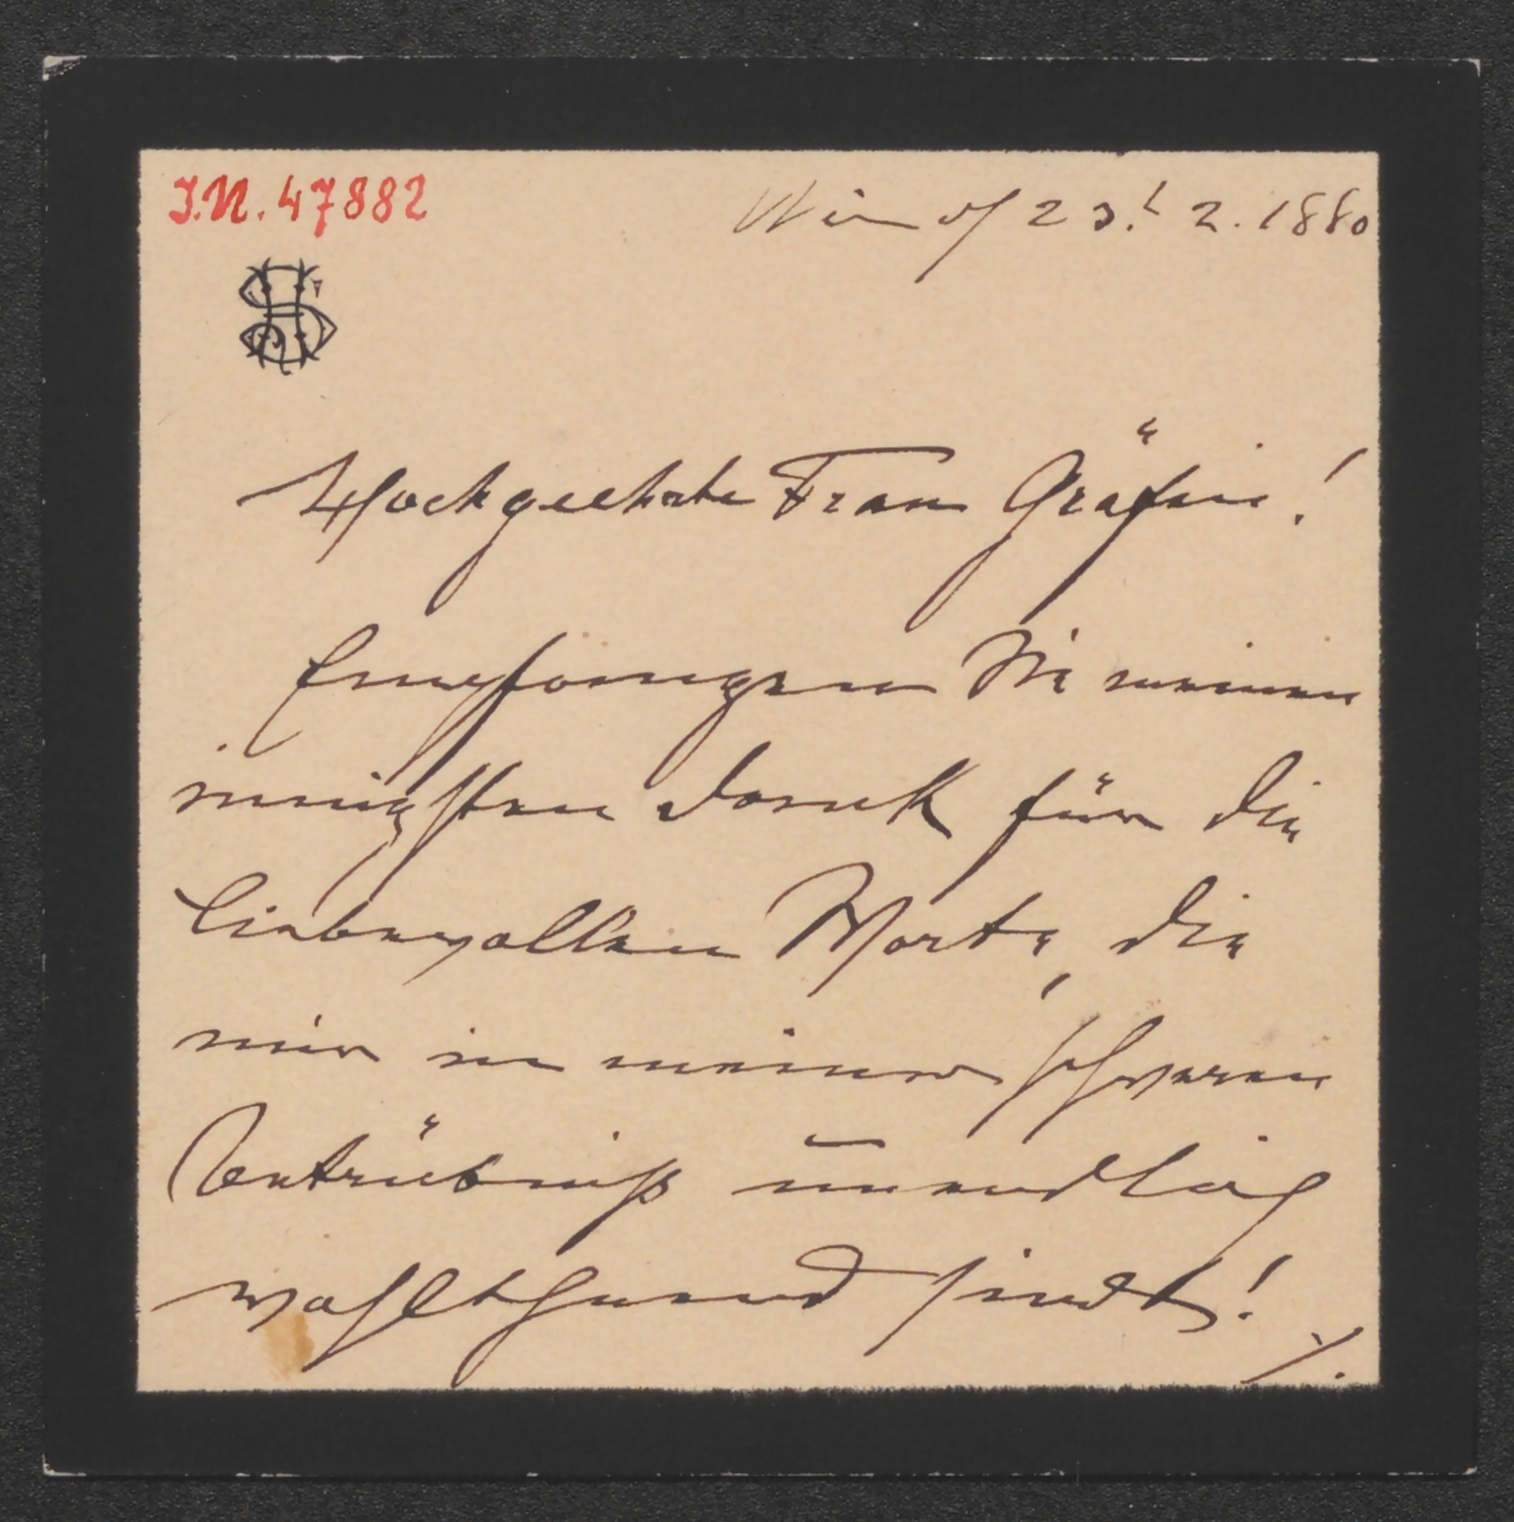 I.N. 47882
Wien 23. 2. 1880
Hochgeehrte Frau Gräfin!
Empfangen Sie meinen
innigsten Dank für die
liebevollen Worte, die
mir in meiner schweren
Betrübniß unendlich
wohlthuend sindt!
./.